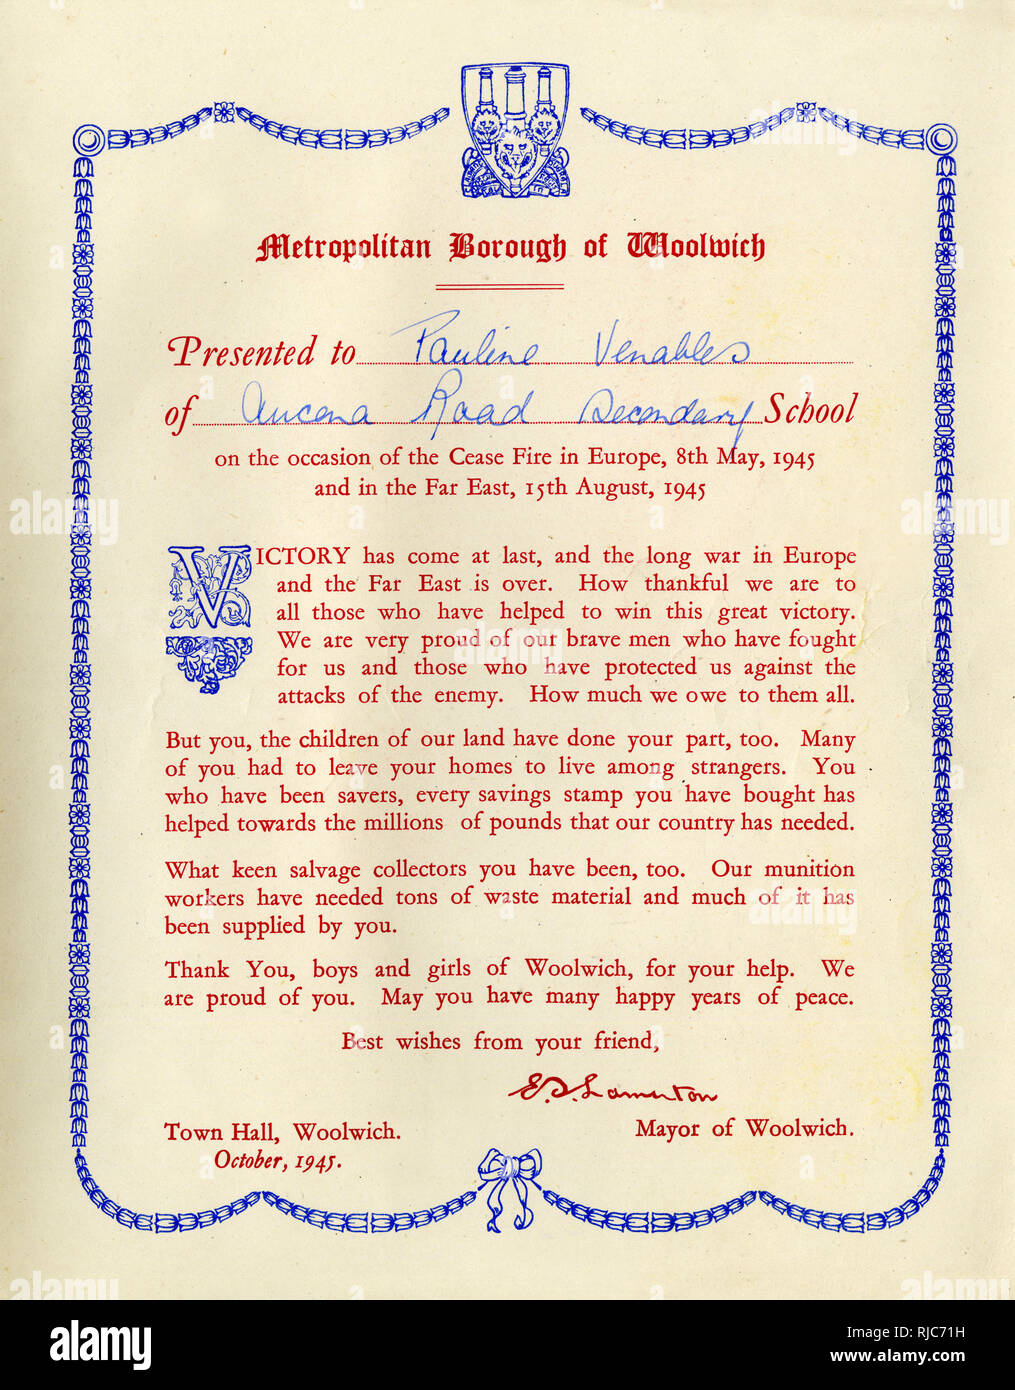 Metropolitan Borough of Woolwich
Presented to Pauline Venables
of Ancona Road Secondary School
on the occasion of the Cease Fire in Europe, 8th May, 1945
and in the Far East, 15th August, 1945
VICTORY has come at last, and the long war in Europe
and the Far East is over. How thankful we are to
all those who have helped to win this great victory.
We are very proud of our brave men who have fought
for us and those who have protected us against the
attacks of the enemy. How much we owe to them all.
But you, the children of our land have done your part, too. Many
of you had to leave your homes to live among strangers. You
who have been savers, every savings stamp you have bought has
helped towards the millions of pounds that our country has needed.
What keen salvage collectors you have been, too. Our munition
workers have needed tons of waste material and much of it has
been supplied by you.
Thank You, boys and girls of Woolwich, for your help. We
are proud of you. May you have many happy years of peace.
Best wishes from your friend,
E.S. Lamerton
Town Hall, Woolwich.
Mayor of Woolwich.
October, 1945.
alamy
Image ID: RJC71H
www.alamy.com